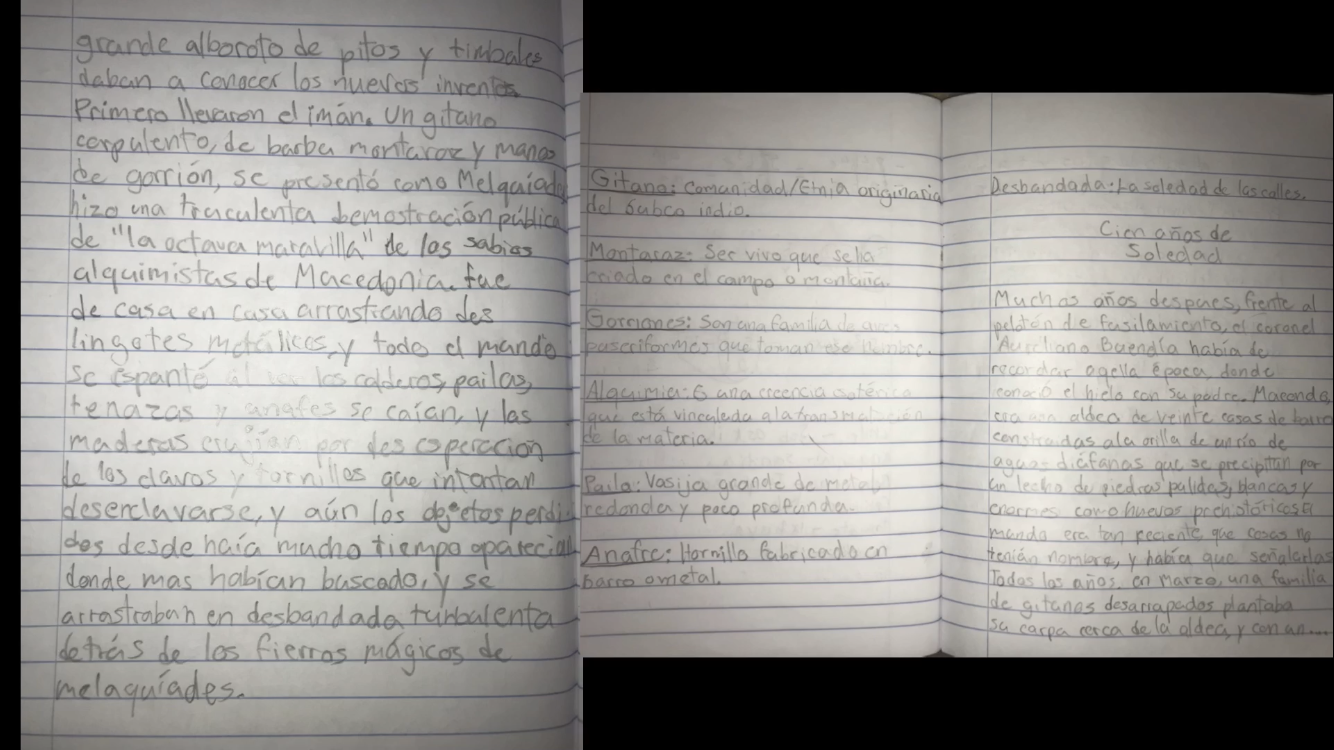 grande alboroto de pitos y timbales
daban a conocer los nuevos inventos
Primero llevaron el imán. Un gitano
corpulento, de barba montaroz y manos
de gorrión, se presentó como Melquíades
hizo una truculenta demostración pública
de "la octava maravilla" de los sabios
alquimistas de Macedonia. fue
de casa en casa arrastrando dos
lingotes metálicos, y todo el mundo
se espanté al ver los calderos, pailas,
tenazas y anafes se caían, y las
maderas crujían por desesperación
de los clavos y tornillos que intentan
desenclavarse, y aún los objetos perdi
dos desde haía mucho tiempo aparecían
donde mas habían buscado, y se
arrastraban en desbandada turbulenta
detrás de los fierros mágicos de
melaquíades.
Gitano: Comunidad/Etnia originaria
del subco indio.
Montaraz: Ser vivo que se ha
criado en el campo o montaña.
Gorriones: Son una familia de aves
passeriformes que toman ese nombre.
Alquimia: Es una creencia
que está vinculada a la transmutación
de la materia.
Paila: Vasija grande de metal
redonda y poco profunda.
Anafre: Hornillo fabricado en
barro o metal.
Desbandada: La soledad de las calles.
Cien años de
Soledad
Muchos años despues, frente al
pelotón de fusilamiento, el coronel
Aureliano Buendía había de
recordar aqella época, donde
conocó el hielo con su padre. Macondo,
era una aldea de veinte casas de barro
construidas a la orilla de un río de
aguas diáfanas que se precipitan por
un lecho de piedras pulidas, blancas y
enormes como huevos prehistóricos. El
mundo era tan reciente que cosas no
tenián nombre, y había que señalarlas
Todos los años, en Marzo, una familia
de gitanos desarrapados plantaba
su carpa cerca de la aldea, y con un....